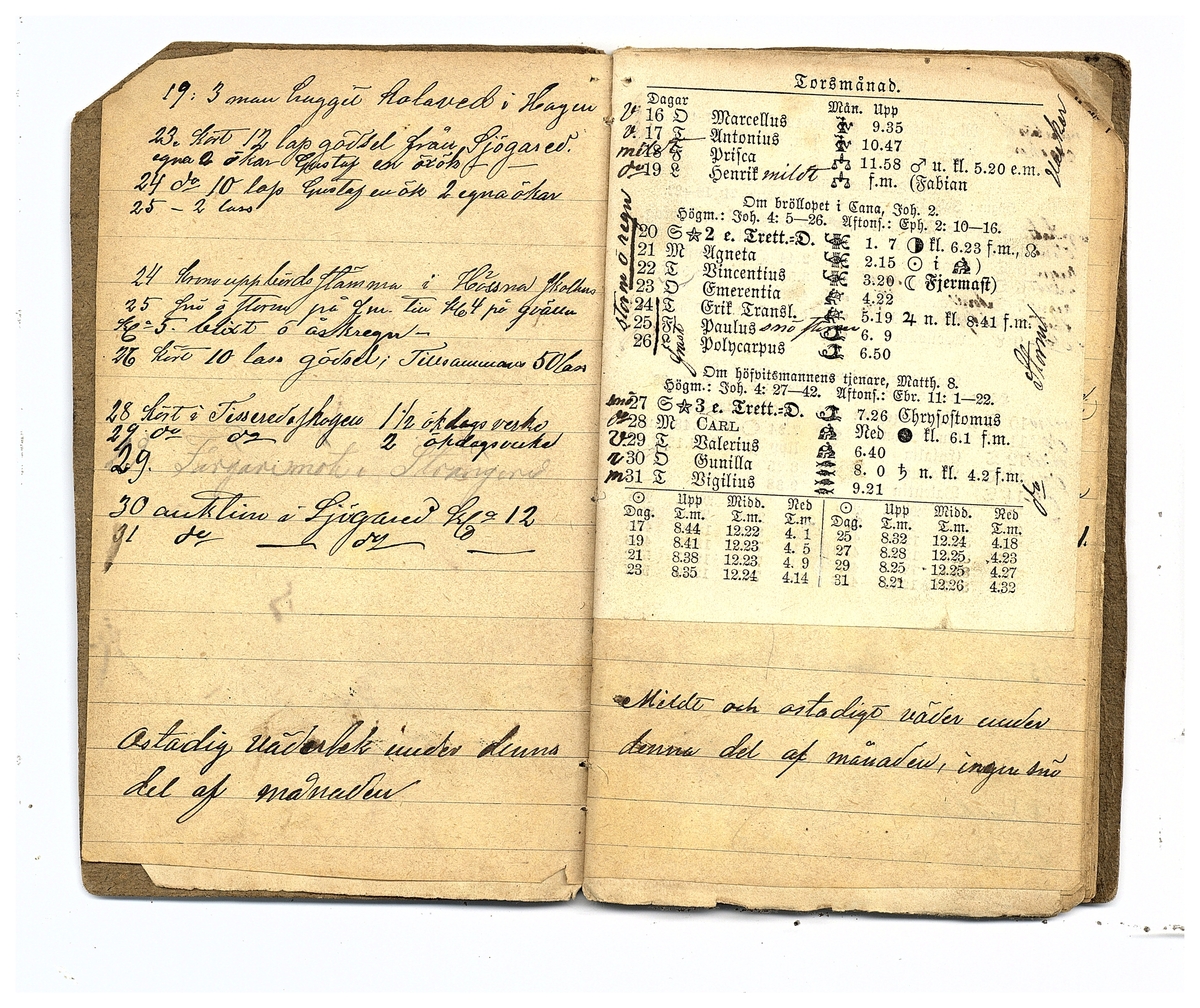 19: 3 man huggit kolaved i Hagen
23. kört 12 lass gödsel från Sjögared.
egna 2 ökar Gustaf en
24 do 10 lass Gustaf en ök 2 egna ökar
25 – 2 lass
24 kronouppbördsstämma i Hössna
25 Snö o storm på f.m. till kl 4 på qvällen
kl 5. blixt o åskregn –
26 kört 10 lass gödsel; Tillsammans 50 lass
28 kört i Tisseredsskogen 1½ ökdagsverke
29 do do 2 ökdagsverke
29.
30 auktion i Sjögared kl 12
31 do — do —
Ostadig väderlek under denna
del af månaden
Torsmånad.
Dagar Mån. Upp
v. 16 O Marcellus 9.35
v. 17 T Antonius 10.47
mildt 18 F Prisca 11.58 ♂ n. kl. 5.20 e.m.
do 19 L Henrik mildt f.m. (Fabian
Om bröllopet i Cana, Joh. 2.
Högm.: Joh. 4: 5—26. Aftons.: Eph. 2: 10—16.
storm o regn
20 S ☆ 2 e. Trett.=D. 1. 7 kl. 6.23 f.m., ☊
21 M Agneta 2.15 ☉ i )
22 T Vincentius 3.20 ☾ Fjermast)
23 O Emerentia 4.22
24 T Erik Transl. 5.19 ♃ n. kl. 8.41 f.m.
25 F Paulus snö storm 6. 9
26 L Polycarpus 6.50
Storm
Om höfvitsmannens tjenare, Matth. 8.
Högm.: Joh. 4: 27—42. Aftons.: Ebr. 11: 1—22.
27 S ☆ 3 e. Trett.=D. 7.26 Chrysostomus
28 M CARL Ned ● kl. 6.1 f.m.
v. 29 T Valerius 6.40
v 30 O Gunilla 8. 0 ♄ n. kl. 4.2 f.m.
m 31 T Vigilius 9.21
do
☉ Upp Midd. Ned ☉ Upp Midd. Ned
Dag. T.m. T.m. T.m. Dag. T.m. T.m. T.m.
17 8.44 12.22 4. 1 25 8.32 12.24 4.18
19 8.41 12.23 4. 5 27 8.28 12.25 4.23
21 8.38 12.23 4. 9 29 8.25 12.25 4.27
23 8.35 12.24 4.14 31 8.21 12.26 4.32
Mildt och ostadigt väder under
denna del af månaden, ingen snö